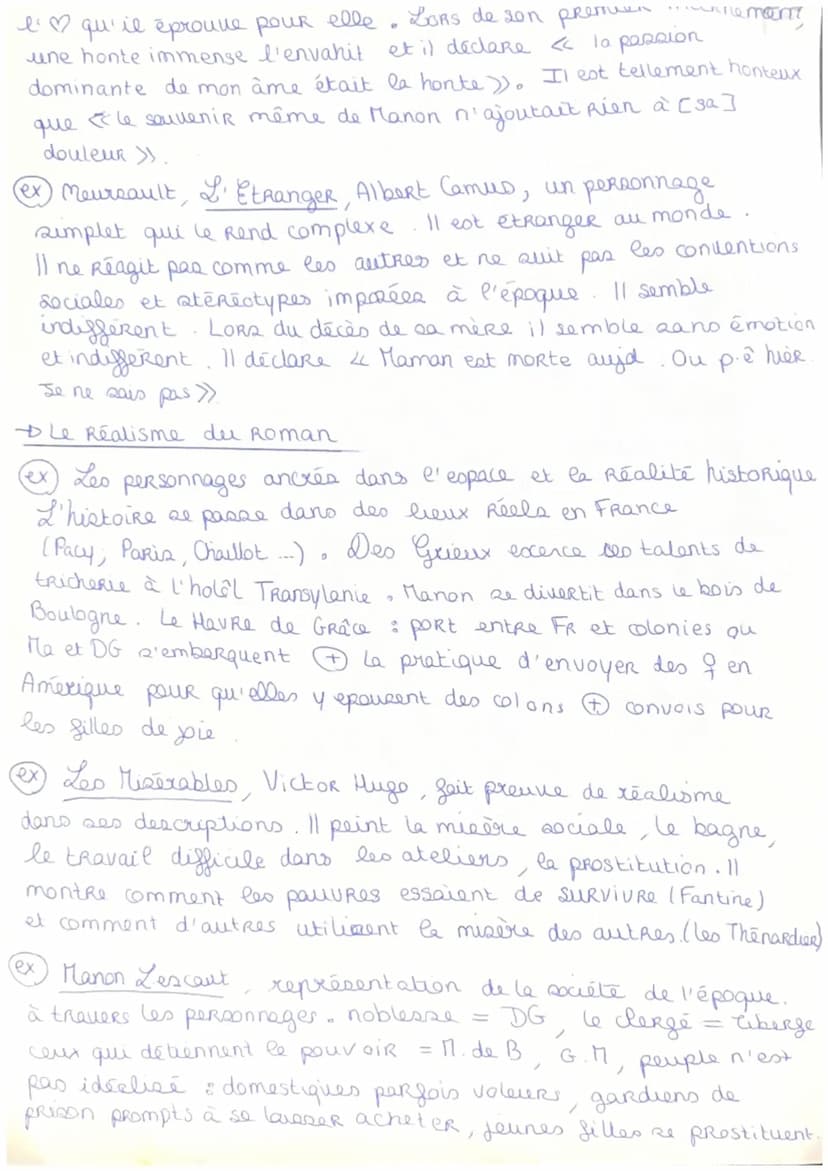 l'♡ qu'il éprouve pour elle. Lors de son premier
une honte immense l'envahit et il déclare « la passion
dominante de mon âme était la honte ». Il est tellement honteux
que « le souvenir même de Manon n'ajoutait rien à [sa]
douleur ».
(ex) Meursault, L'Etranger, Albert Camus, un personnage
simplet qui le rend complexe. Il est étranger au monde.
Il ne réagit pas comme les autres et ne suit pas les conventions
sociales et stéréotypes imposées à l'époque. Il semble
indifférent. Lors du décès de sa mère il semble sans émotion
et indifférent. Il déclare « Maman est morte aujd. Ou p.ê hier.
Je ne sais pas »
→ Le Réalisme du Roman
(ex) Les personnages ancrés dans l'espace et la réalité historique
L'histoire se passe dans des lieux réels en France
(Pacy, Paris, Chaillot ...). Des Grieux excerce ses talents de
tricherie à l'hotêl Transylanie. Manon se divertit dans le bois de
Boulogne. Le Havre de Grâce : port entre FR et colonies ou
Ma et DG s'embarquent ⊕ La pratique d'envoyer des ♀ en
Amérique pour qu'elles y epousent des colons ⊕ convois pour
les filles de joie.
(ex) Les Misérables, Victor Hugo, fait preuve de réalisme
dans ses descriptions. Il peint la misère sociale, le bagne,
le travail difficile dans les ateliers, la prostitution. Il
montre comment les pauvres essaient de survivre (Fantine)
et comment d'autres utilisent la misère des autres. (les Thénardier)
(ex) Manon Lescaut, représentation de la société de l'époque.
à travers les personnages. noblesse = DG, le clergé = Tiberge
ceux qui détiennent le pouvoir = M. de B, G.M, peuple n'est
pas idéalisé : domestiques parfois voleurs, gardiens de
prison prompts à se laisser acheter, jeunes filles se prostituent.